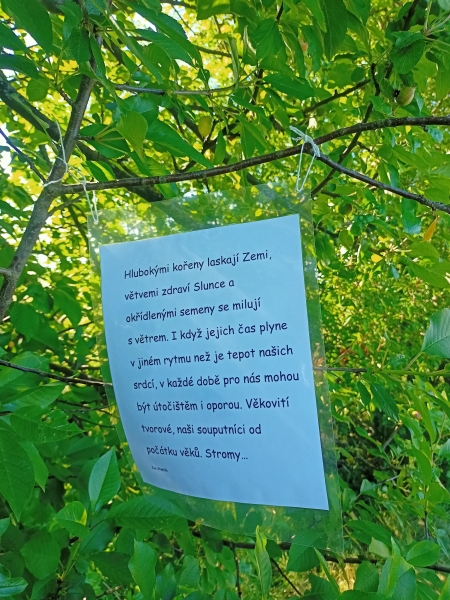 Hlubokými kořeny laskají Zemi,
větvemi zdraví Slunce a
okřídlenými semeny se milují
s větrem. I když jejich čas plyne
v jiném rytmu než je tepot našich
srdcí, v každé době pro nás mohou
být útočištěm i oporou. Věkovití
tvorové, naši souputníci od
počátku věků. Stromy...